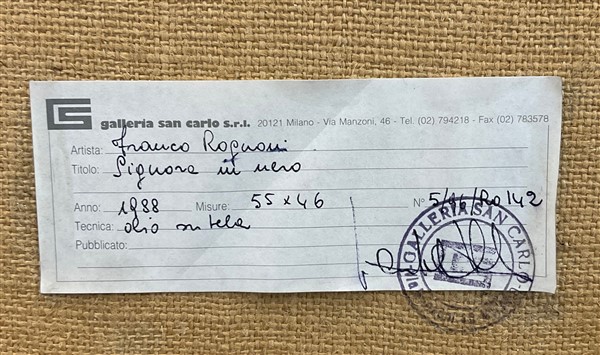 galleria san carlo s.r.l. 20121 Milano - Via Manzoni, 46 - Tel. (02) 794218 - Fax (02) 783578
Artista: Franco Rognoni
Titolo: Signora in nero
Anno: 1988 Misure: 55 x 46 N° 5/91/Ro142
Tecnica: olio su tela
Pubblicato:
GALLERIA SAN CARLO